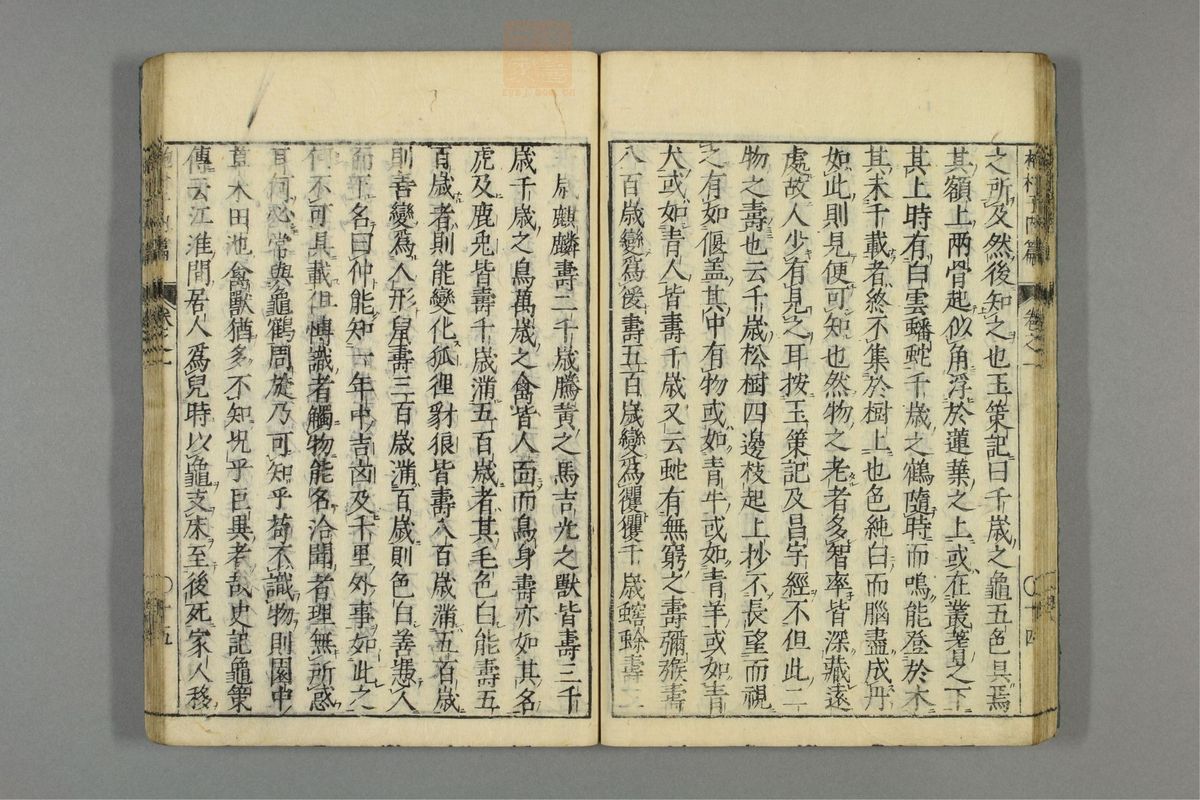 抱朴子内篇 卷之一 〇十四
之所及然後知之也玉策記曰千歳之龜五色具焉
其額上兩骨起似角浮於蓮葉之上或在叢蓍之下
其上時有白雲蟠蛇千歳之鶴隨時而鳴能登於木
其未千載者終不集於樹上也色純白而腦盡成丹
如此則見便可知也然物之老者多智率皆深藏遠
處故人少有見之耳按玉策記及昌宇經不但此二
物之壽也云千歳松樹四邊枝起上抄不長望而視
之有如偃盖其中有物或如青牛或如青羊或如青
犬或如青人皆壽千歳又云蛇有無窮之壽獼猴壽
八百歳變爲猨壽五百歳變爲玃玃千歳蟾蜍壽三
千歳麒麟壽二千歳騰黄之馬吉光之獸皆壽三千
歳千歳之鳥萬歳之禽皆人面而鳥身壽亦如其名
虎及鹿兎皆壽千歳滿五百歳者其毛色白能壽五
百歳者則能變化狐狸豺狼皆壽八百歳滿五百歳
則善變爲人形鼠壽三百歳滿百歳則色白善憑人
而卜名曰仲能知一年中吉凶及千里外事如此之
何不可具載但愽識者觸物能名洽聞者理無所惑
耳何必常與龜鶴周旋乃可知乎苟不識物則園中
草木田池禽獸猶多不知况乎巨異者哉史記龜策
傳云江淮間居人爲兒時以龜支床至後死家人移
卷之一 〇十五